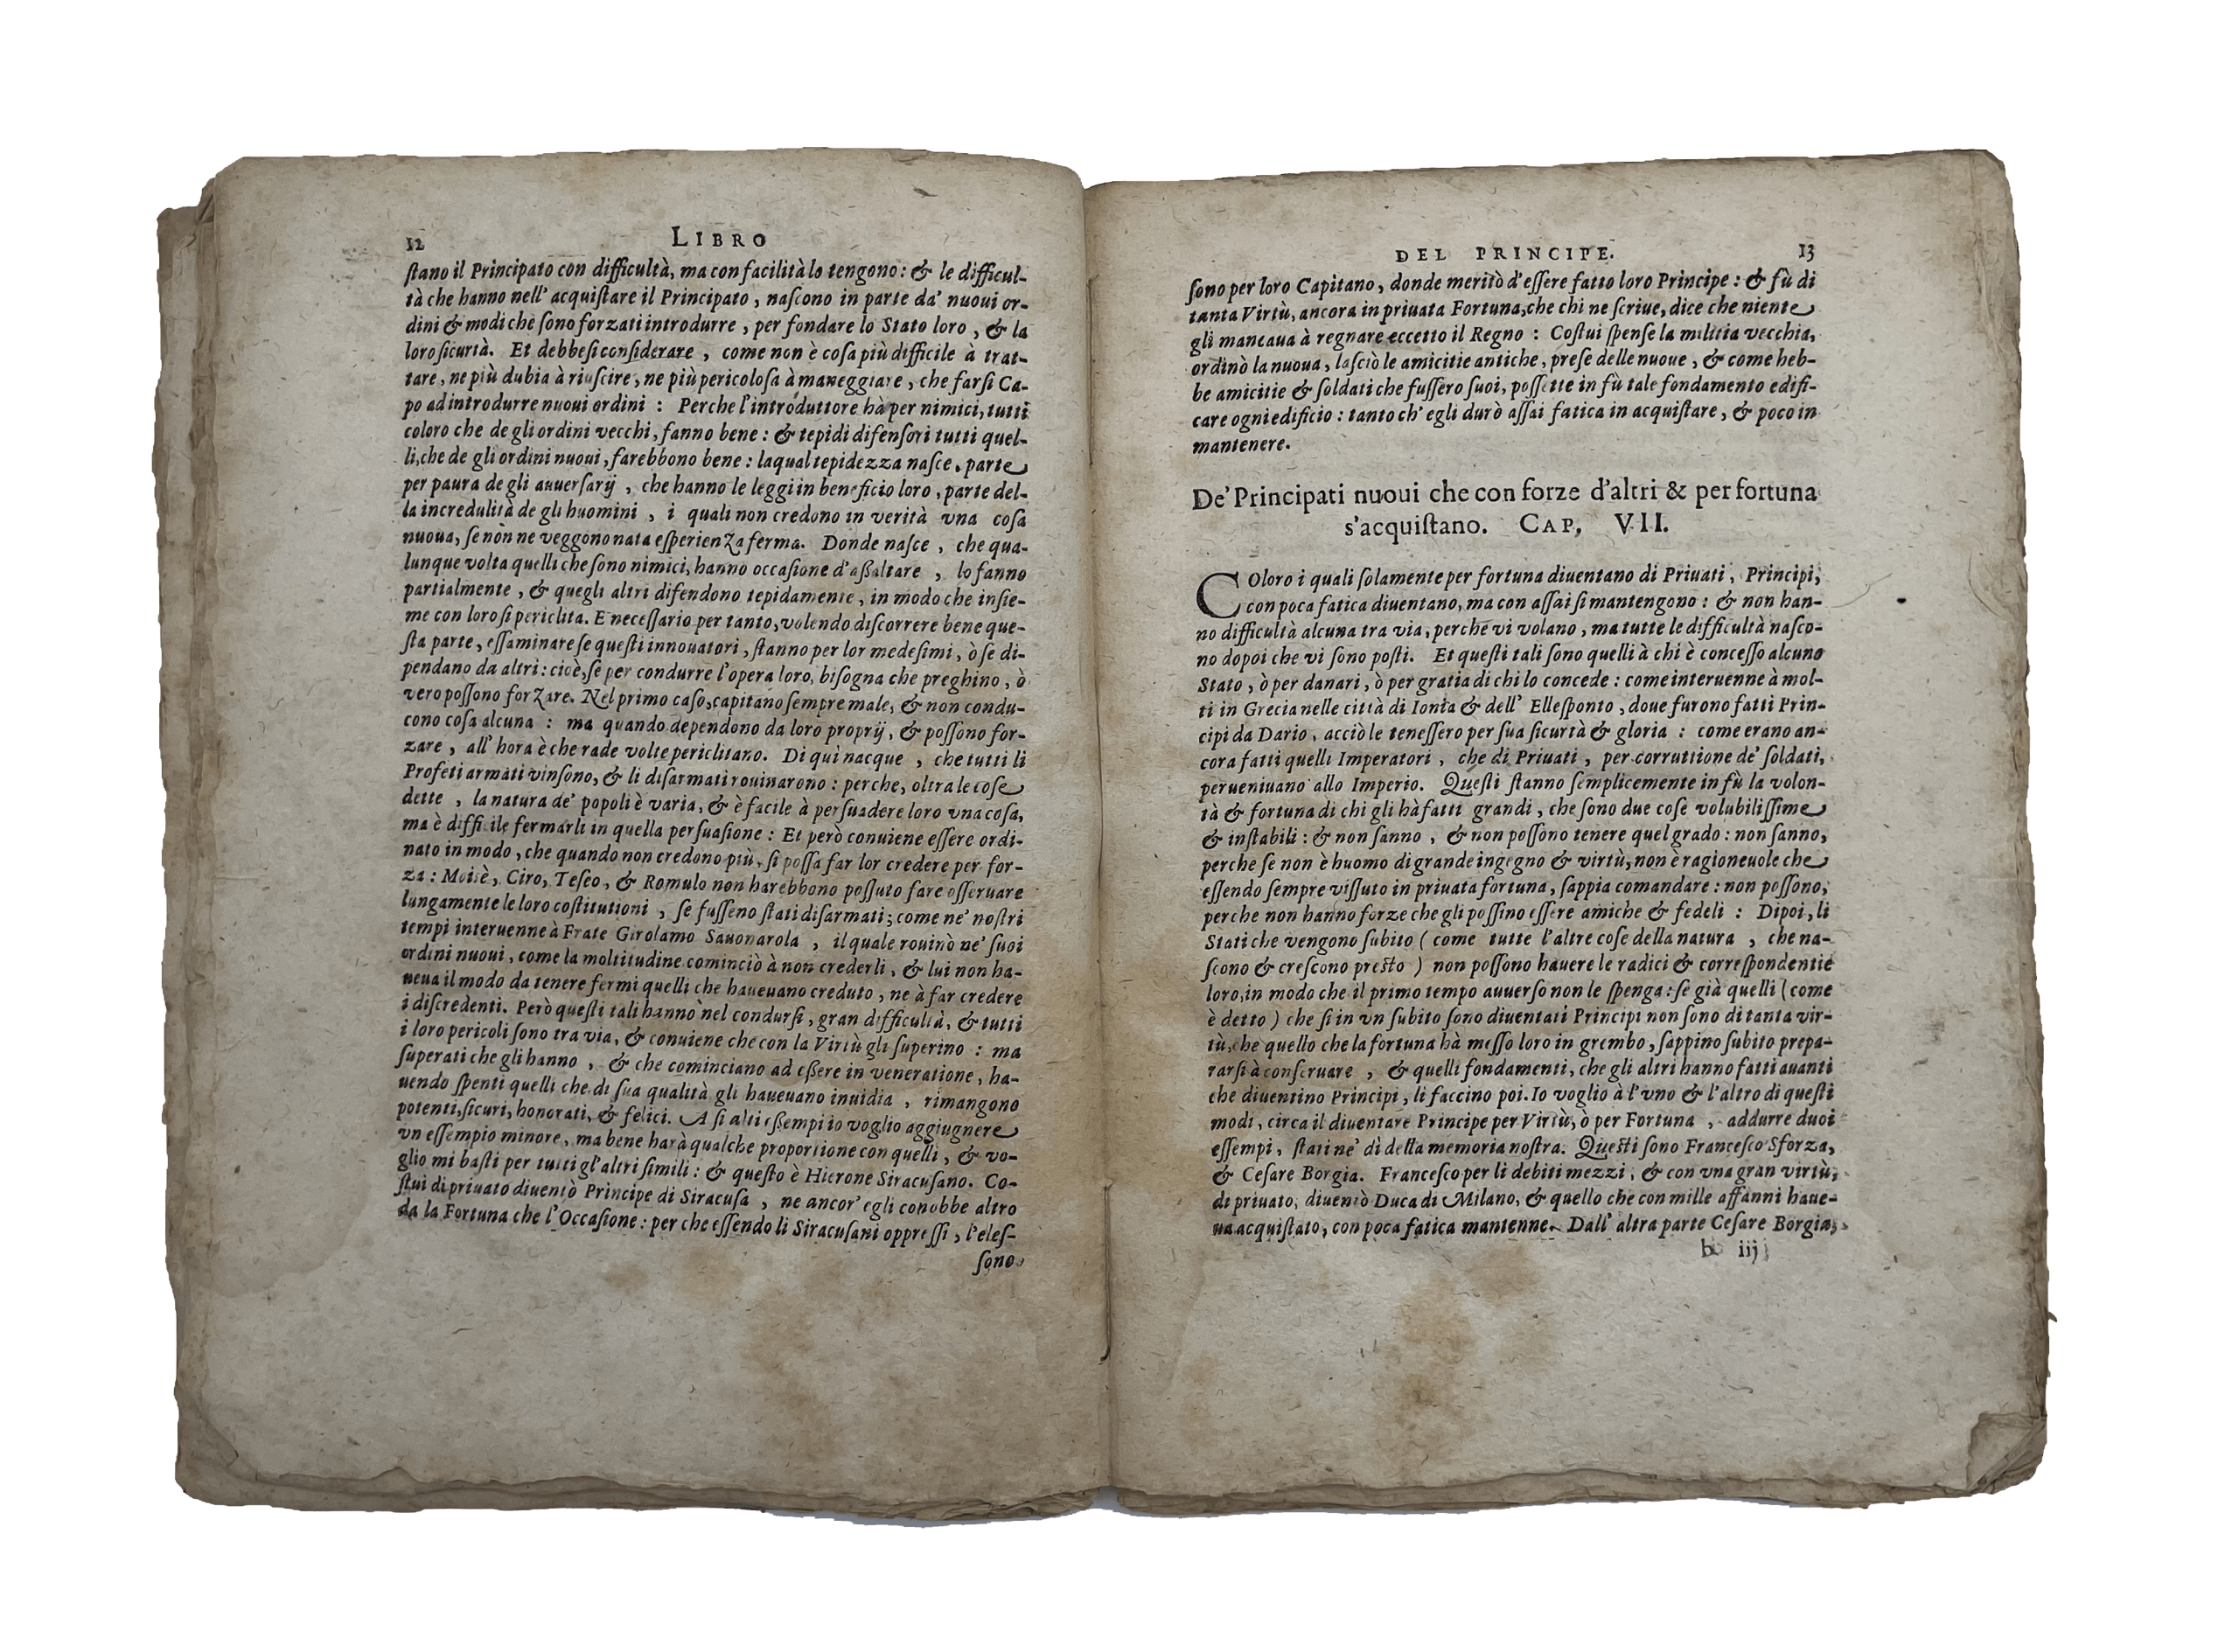 12 LIBRO
ſtano il Principato con difficultà, ma con facilità lo tengono: & le difficul-
tà che hanno nell' acquiſtare il Principato, naſcono in parte da' nuoui or-
dini & modi che ſono forzati introdurre, per fondare lo Stato loro, & la
loro ſicurtà. Et debbeſi conſiderare, come non è coſa più difficile à trat-
tare, ne più dubia à riuſcire, ne più pericoloſa à maneggiare, che farſi Ca-
po ad introdurre nuoui ordini: Perche l'introduttore hà per nimici, tutti
coloro che de gli ordini vecchi, fanno bene: & tepidi difenſori tutti quel-
li, che de gli ordini nuoui, farebbono bene: laqual tepidezza naſce, parte
per paura de gli auuerſarij, che hanno le leggi in beneficio loro, parte del-
la incredulità de gli huomini, i quali non credono in verità vna coſa
nuoua, ſe nòn ne veggono nata eſperienza ferma. Donde naſce, che qua-
lunque volta quelli che ſono nimici, hanno occaſione d'aſſaltare, lo fanno
partialmente, & quegli altri difendono tepidamente, in modo che inſie-
me con loro ſi periclita. E neceſſario per tanto, volendo diſcorrere bene que-
ſta parte, eſſaminare ſe queſti innouatori, ſtanno per lor medeſimi, ò ſe di-
pendano da altri: cioè, ſe per condurre l'opera loro, biſogna che preghino, ò
vero poſſono forzare. Nel primo caſo, capitano ſempre male, & non condu-
cono coſa alcuna: ma quando dependono da loro proprij, & poſſono for-
zare, all' hora è che rade volte periclitano. Di quì nacque, che tutti li
Profeti armati vinſono, & li diſarmati rouinarono: perche, oltra le coſe
dette, la natura de' popoli è varia, & è facile à perſuadere loro vna coſa,
ma è difficile fermarli in quella perſuaſione: Et però conuiene eſſere ordi-
nato in modo, che quando non credono più, ſi poſſa far lor credere per for-
za: Moisè, Ciro, Teſeo, & Romulo non harebbono poſſuto fare oſſeruare
lungamente le loro coſtitutioni, ſe fuſſeno ſtati diſarmati; come ne' noſtri
tempi interuenne à Frate Girolamo Sauonarola, il quale rouinò ne' ſuoi
ordini nuoui, come la moltitudine cominciò à non crederli, & lui non ha-
ueua il modo da tenere fermi quelli che haueuano creduto, ne à far credere
i diſcredenti. Però queſti tali hannò nel condurſi, gran difficultà, & tutti
i loro pericoli ſono tra via, & conuiene che con la Virtù gli ſuperino: ma
ſuperati che gli hanno, & che cominciano ad eſſere in veneratione, ha-
uendo ſpenti quelli che di ſua qualità gli haueuano inuidia, rimangono
potenti, ſicuri, honorati, & felici. A ſi alti eſſempi io voglio aggiugnere
vn eſſempio minore, ma bene harà qualche proportione con quelli, & vo-
glio mi baſti per tutti gl'altri ſimili: & queſto è Hierone Siracuſano. Co-
ſtui di priuato diuentò Principe di Siracuſa, ne ancor' egli conobbe altro
da la Fortuna che l'Occaſione: per che eſſendo li Siracuſani oppreſſi, l'eleſ-
ſono
DEL PRINCIPE. 13
ſono per loro Capitano, donde meritò d'eſſere fatto loro Principe: & fù di
tanta Virtù, ancora in priuata Fortuna, che chi ne ſcriue, dice che niente
gli mancaua à regnare eccetto il Regno: Coſtui ſpenſe la militia vecchia,
ordinò la nuoua, laſciò le amicitie antiche, preſe delle nuoue, & come heb-
be amicitie & ſoldati che fuſſero ſuoi, poſſette in ſù tale fondamento edifi-
care ogni edificio: tanto ch' egli durò aſſai fatica in acquiſtare, & poco in
mantenere.
De' Principati nuoui che con forze d'altri & per fortuna
s'acquiſtano. CAP. VII.
COloro i quali ſolamente per fortuna diuentano di Priuati, Principi,
con poca fatica diuentano, ma con aſſai ſi mantengono: & non han-
no difficultà alcuna tra via, perche vi volano, ma tutte le difficultà naſco-
no dopoi che vi ſono poſti. Et queſti tali ſono quelli à chi è conceſſo alcuno
Stato, ò per danari, ò per gratia di chi lo concede: come interuenne à mol-
ti in Grecia nelle città di Ionia & dell' Elleſponto, doue furono fatti Prin-
cipi da Dario, acciò le teneſſero per ſua ſicurtà & gloria: come erano an-
cora fatti quelli Imperatori, che di Priuati, per corruttione de' ſoldati,
perueniuano allo Imperio. Queſti ſtanno ſemplicemente in ſù la volon-
tà & fortuna di chi gli hà fatti grandi, che ſono due coſe volubiliſſime
& inſtabili: & non ſanno, & non poſſono tenere quel grado: non ſanno,
perche ſe non è huomo di grande ingegno & virtù, non è ragioneuole che
eſſendo ſempre viſſuto in priuata fortuna, ſappia comandare: non poſſono,
perche non hanno forze che gli poſſino eſſere amiche & fedeli: Dipoi, li
Stati che vengono ſubito (come tutte l'altre coſe della natura, che na-
ſcono & creſcono preſto) non poſſono hauere le radici & correſpondentie
loro, in modo che il primo tempo auuerſo non le ſpenga: ſe già quelli (come
è detto) che ſi in vn ſubito ſono diuentati Principi non ſono di tanta vir-
tù, che quello che la fortuna hà meſſo loro in grembo, ſappino ſubito prepa-
rarſi à conſeruare, & quelli fondamenti, che gli altri hanno fatti auanti
che diuentino Principi, li faccino poi. Io voglio à l'vno & l'altro di queſti
modi, circa il diuentare Principe per Virtù, ò per Fortuna, addurre duoi
eſſempi, ſtati ne' dì della memoria noſtra. Queſti ſono Franceſco Sforza,
& Ceſare Borgia. Franceſco per li debiti mezzi, & con vna gran virtù,
di priuato, diuentò Duca di Milano, & quello che con mille affanni haue-
ua acquiſtato, con poca fatica mantenne. Dall' altra parte Ceſare Borgia,
b iij